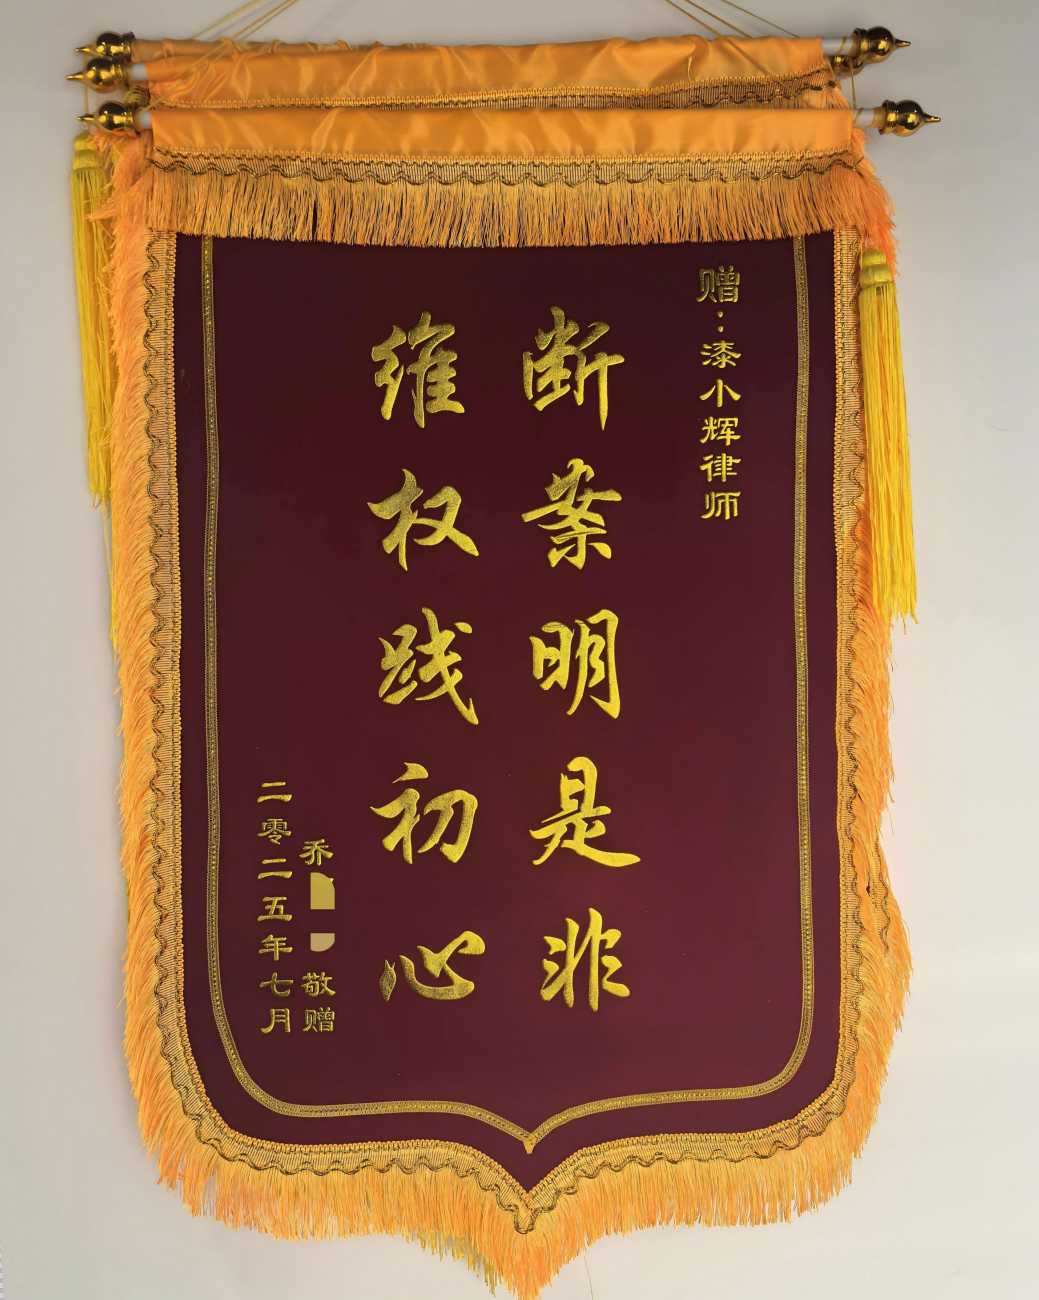 赠：漆小辉律师
断案明是非
维权践初心
乔 敬赠
二零二五年七月